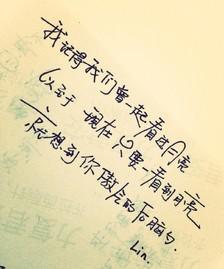 我记得我们曾一起看过月亮
以至于现在只要看到月亮
就想到你傲人的后脑勺.
Lin.